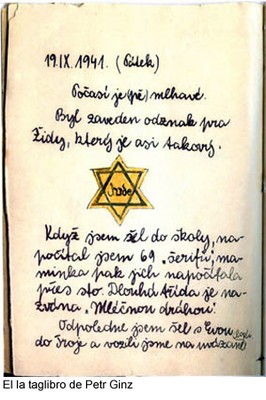 19.IX.1941. (Pátek)
Počasí je (prý) mlhavé.
Byl zaveden odznak pro
Židy, který je asi takový.
Jude
Když jsem šel do školy, na-
počítal jsem 69 „šerifů“, ma-
minka pak jich napočítala
přes sto. Dlouhá třída je na-
zvána „Mléčnou dráhou“.
Odpoledne jsem šel s Evou
do Troje a vozili jsme na
El la taglibro de Petr Ginz